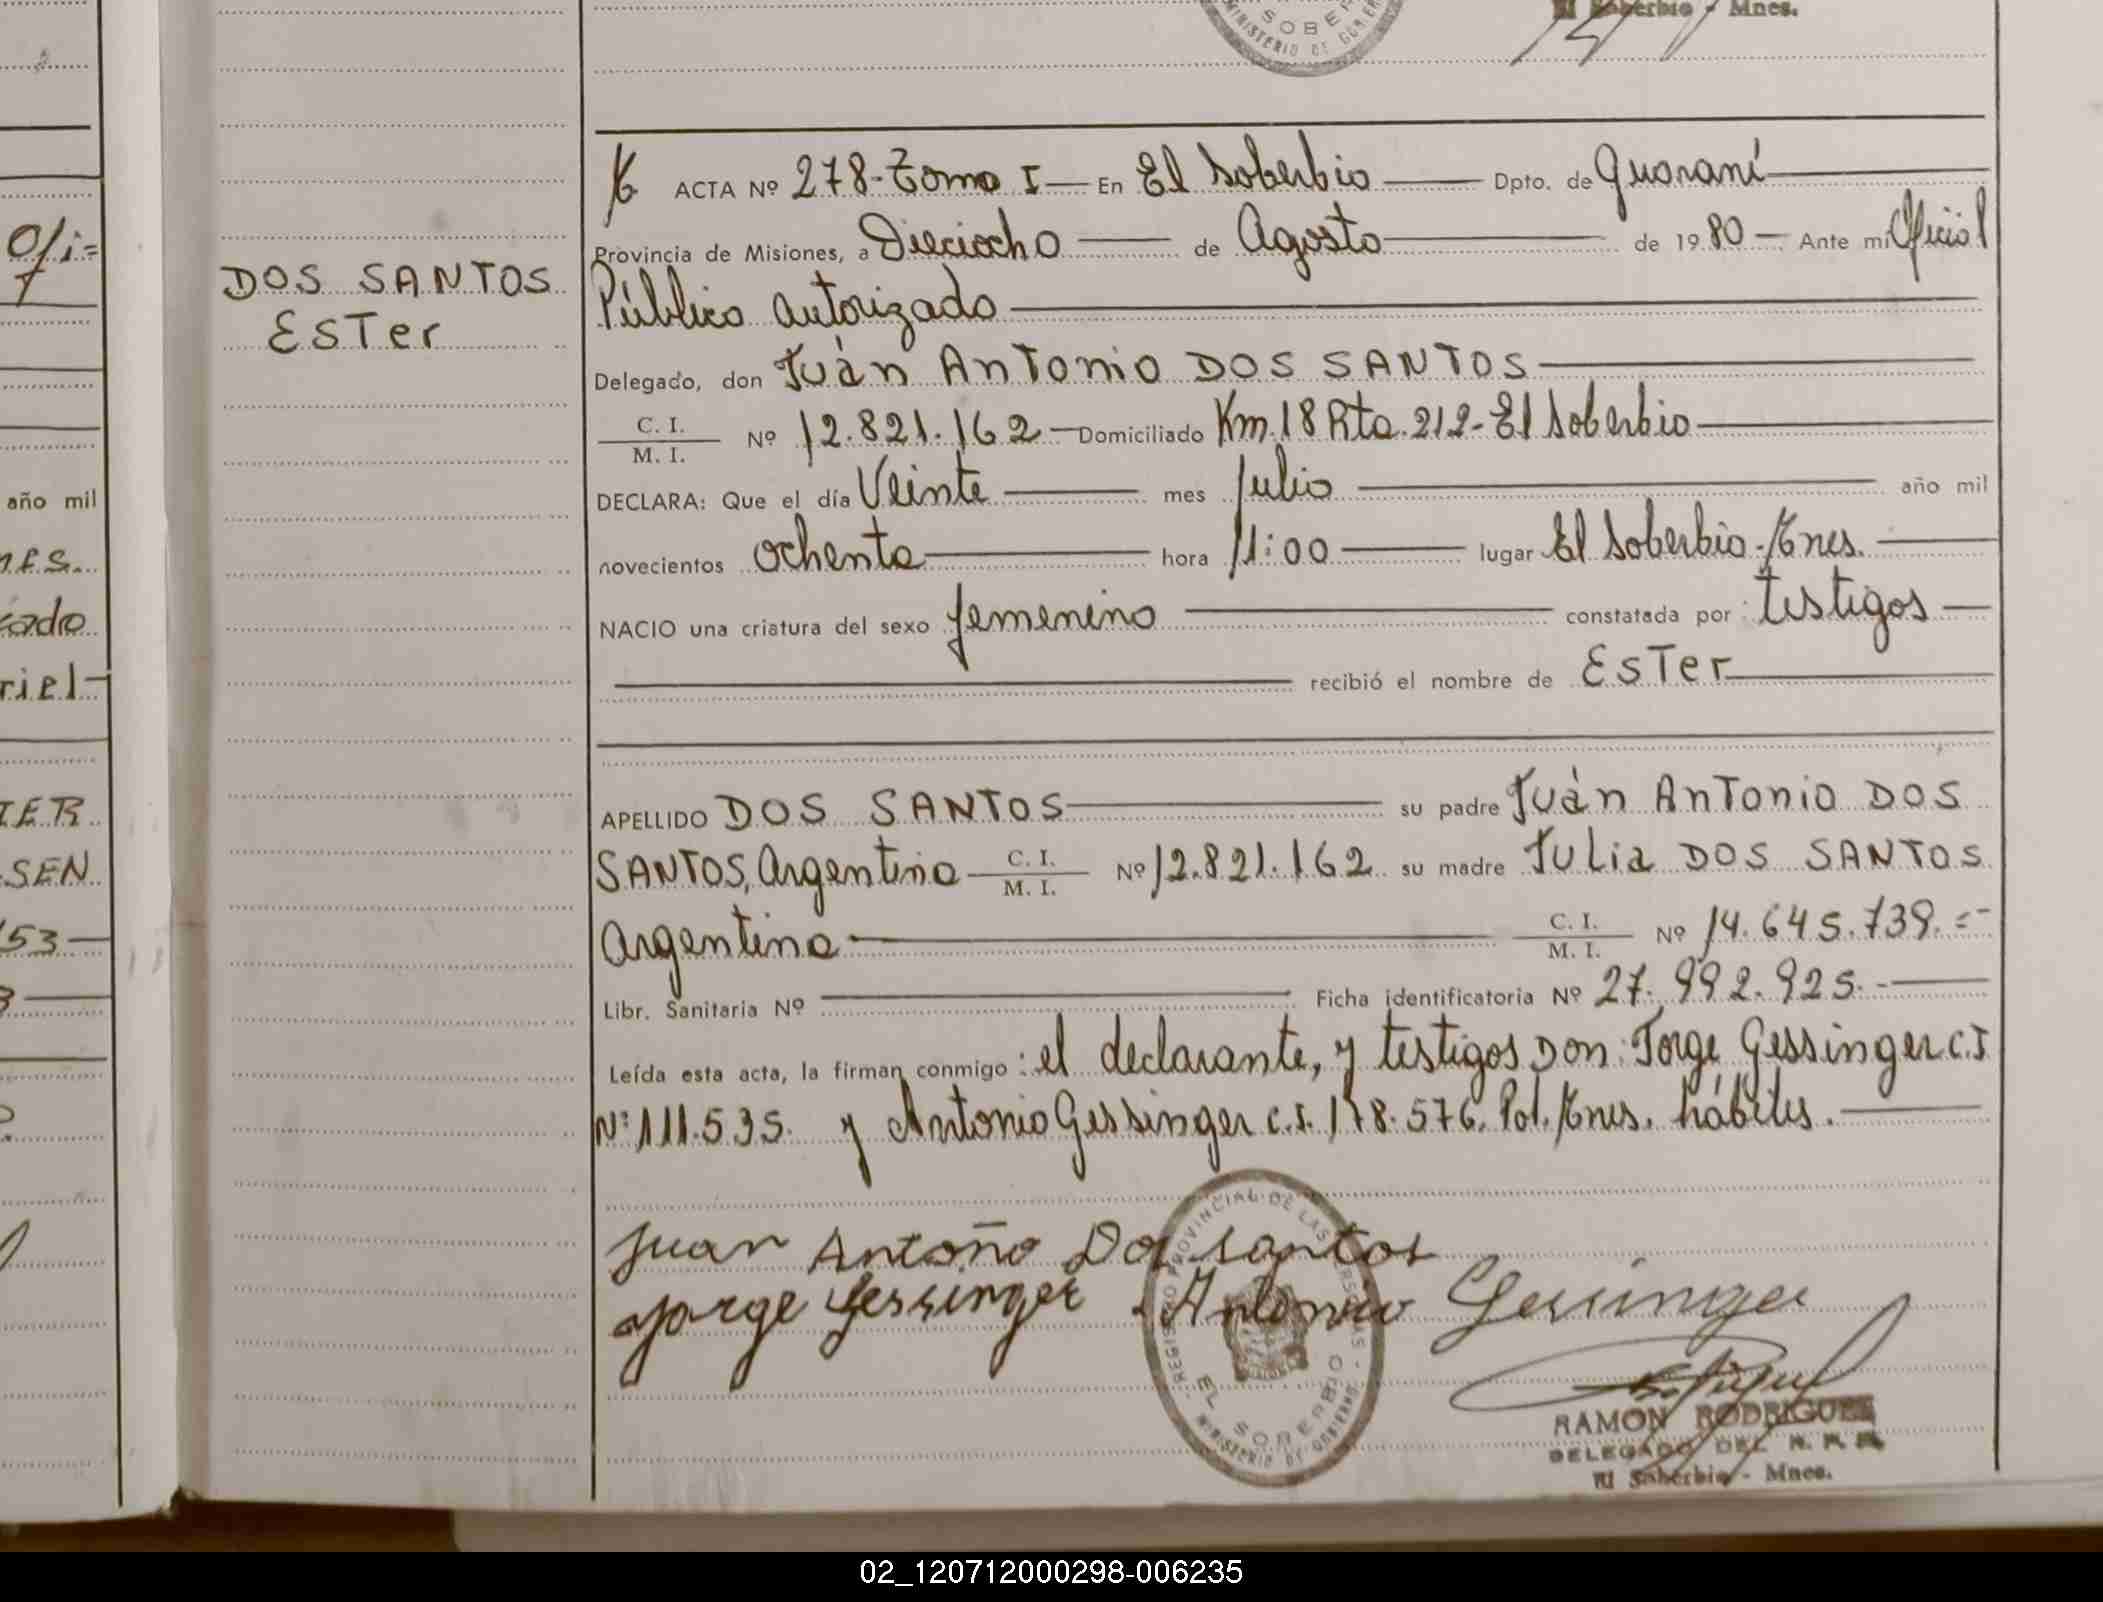 SOBER
MINISTERIO DE GOBIER
El Soberbio - Mnes.
Ofi=
año mil
nes.
cado
riel-
TER
SEN
53
DOS SANTOS
EsTer
ACTA Nº 278-Tomo I En El Soberbio Dpto. de Guaraní
Provincia de Misiones, a Dieciocho de Agosto de 19 80 Ante mi Oficial
Público autorizado
Delegado, don Juàn AnTonio DOS SANTOS
C. I.
M. I. Nº 12.821.162 Domiciliado Km.18 Rta.212-El Soberbio
DECLARA: Que el día Veinte mes Julio año mil
novecientos ochenta hora 11:00 lugar El Soberbio-Mnes.
NACIO una criatura del sexo femenino constatada por testigos
recibió el nombre de EsTer
APELLIDO DOS SANTOS su padre Juàn AnTonio DOS
SANTOS, Argentino C. I.
M. I. Nº 12.821.162 su madre Julia DOS SANTOS
Argentina C. I.
M. I. Nº 14.645.739.=-
Libr. Sanitaria Nº Ficha identificatoria Nº 27.992.925.-
Leída esta acta, la firman conmigo: el declarante, y testigos Don: Jorge Gessinger C.I
Nº 111.535. y Antonio Gessinger C.I. 178.576. Pol. Mnes. hábiles.
Juan Antoño Dos santos
Jorge Gessinger Antonio Gessinger
REGISTRO PROVINCIAL DE LAS PERSONAS - EL SOBERBIO MINISTERIO DE GOBIERNO
RAMON RODRIGUEZ
DELEGADO DEL R. P. P.
El Soberbio - Mnes.
02_120712000298-006235